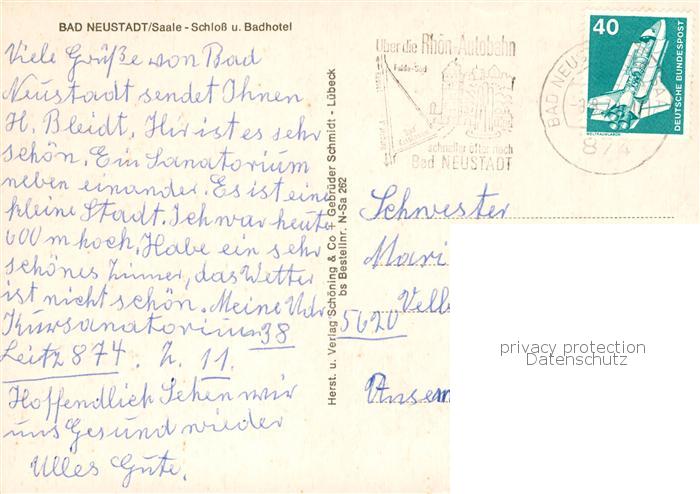 BAD NEUSTADT/Saale - Schloß u. Badhotel
Viele Grüße von Bad
Neustadt sendet Ihnen
H. Bleidt. Hir ist es sehr
schön. Ein Sanatorium
neben einander. Es ist eine
kleine Stadt. Ich war heute
600 m hoch. Habe ein sehr
schönes Zimmer, das Wetter
ist nicht schön. Meine
Kursanatorium 38
Leitz 874. Z. 11.
Hoffendlich Sehen wir
uns Gesund wieder
Alles Gute.
Herst. u. Verlag Schöning & Co + Gebrüder Schmidt - Lübeck
bs Bestellnr. N-Sa 262
Über die Rhön-Autobahn
Fulda-Süd
schneller öfter nach
Bad NEUSTADT
BAD NEUS
40
DEUTSCHE BUNDESPOST
WELTRAUMLABOR
Schwester
Mari
Velb
5620
privacy protection
Datenschutz